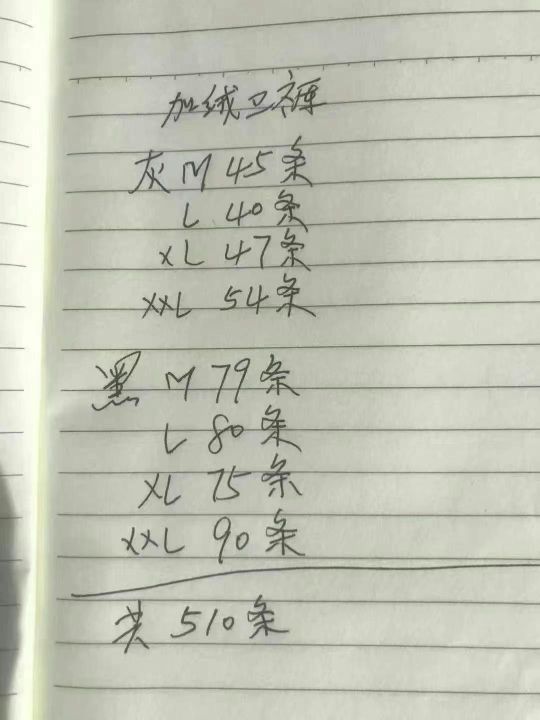 加绒卫裤
灰 M 45条
L 40条
XL 47条
XXL 54条
黑 M 79条
L 80条
XL 75条
XXL 90条
共 510条